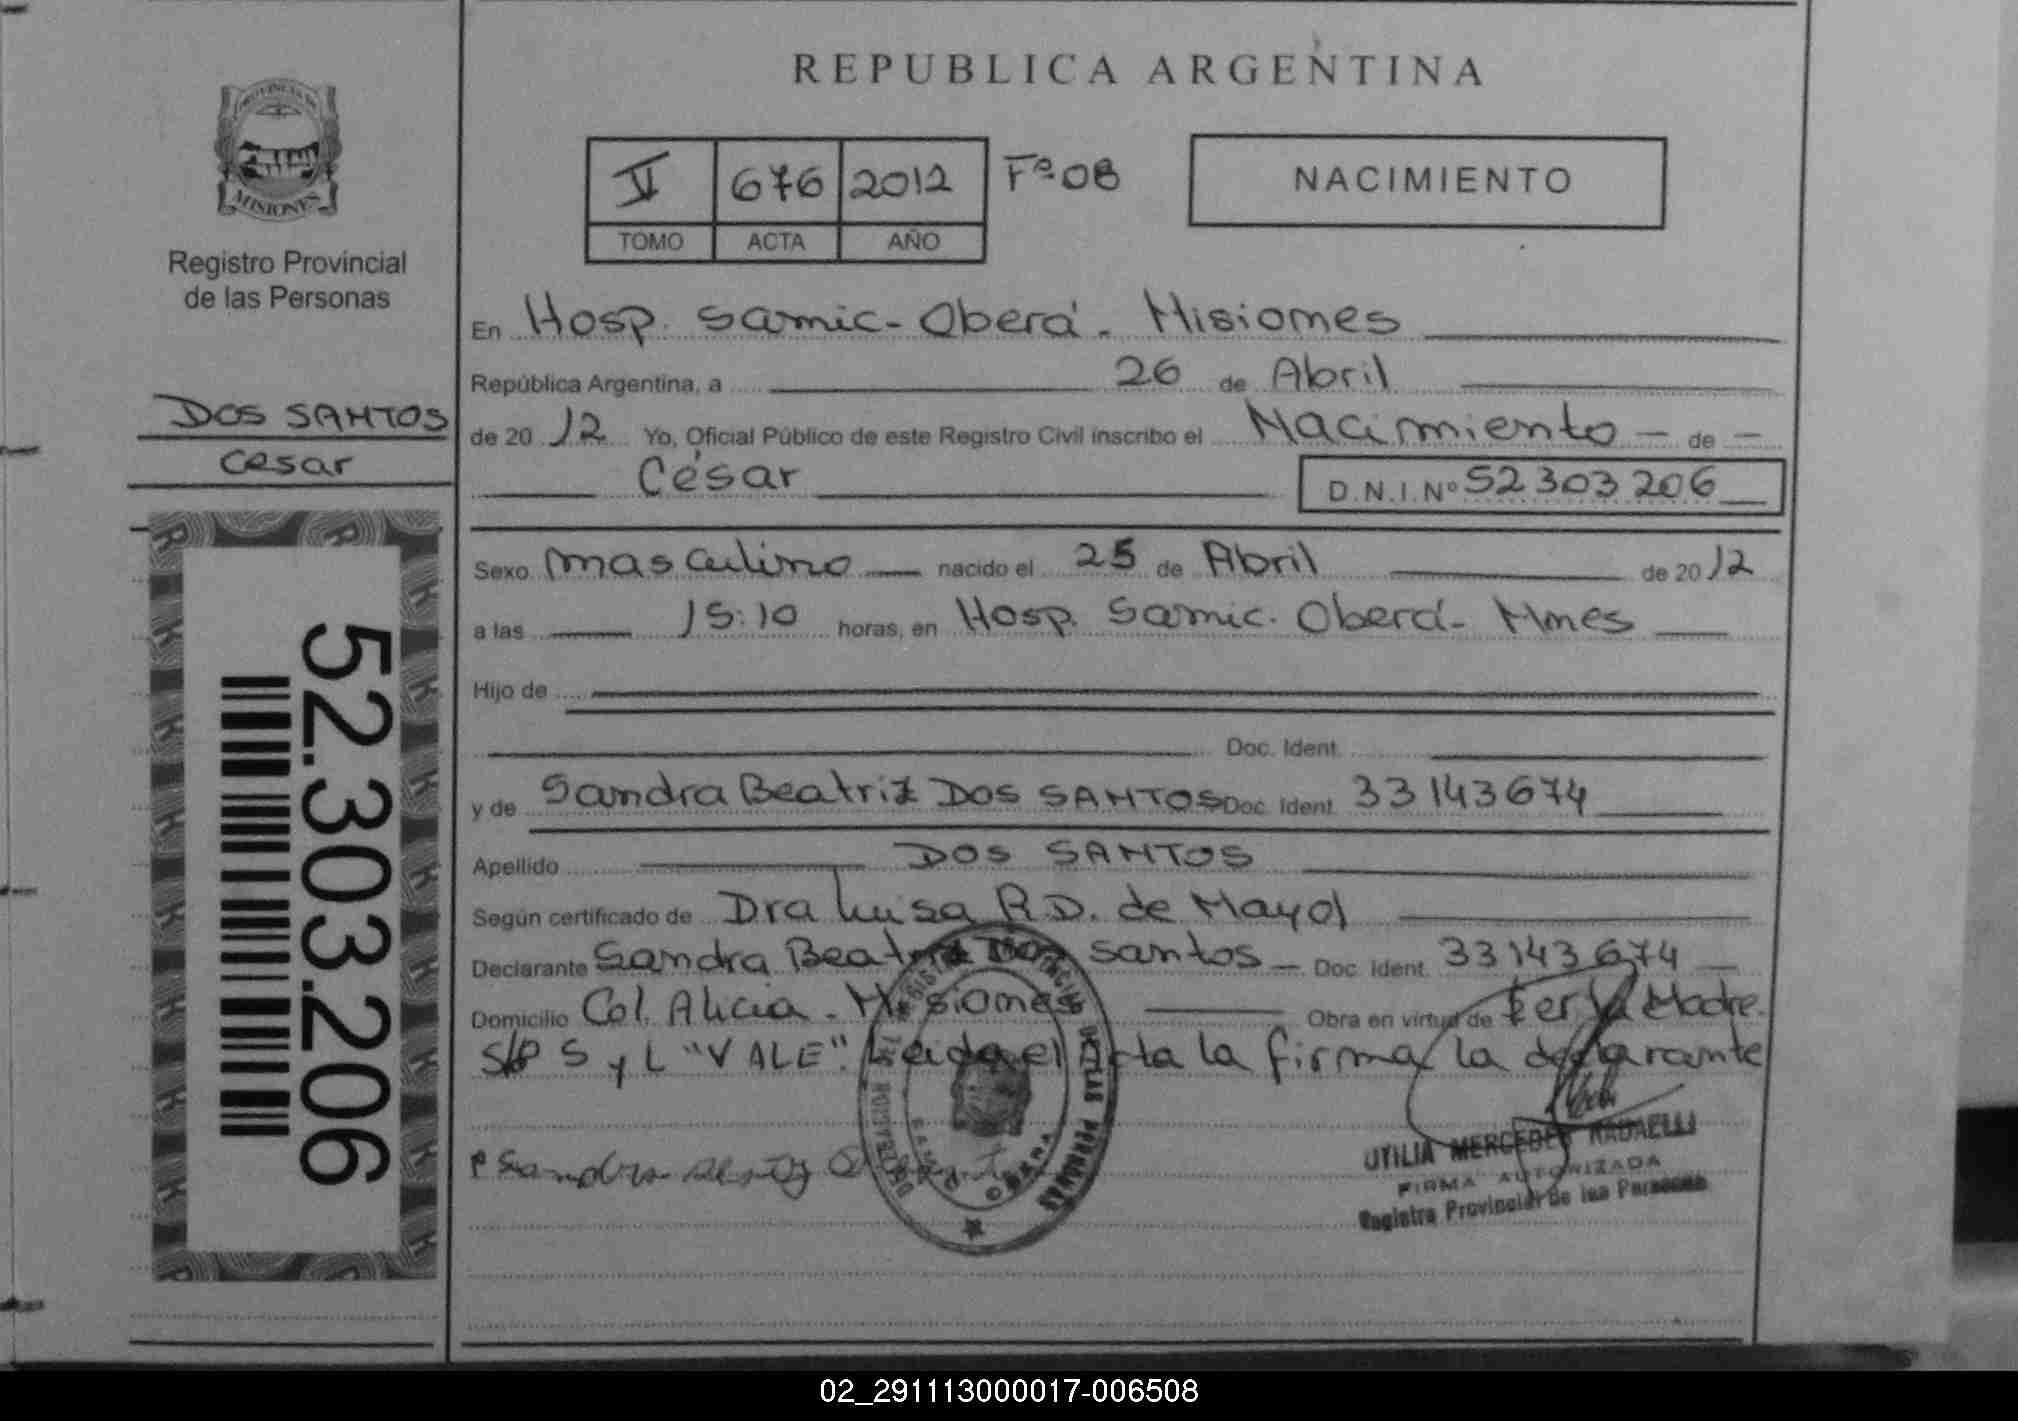 PROVINCIA DE
MISIONES
Registro Provincial
de las Personas
DOS SANTOS
Cesar
52.303.206
REPUBLICA ARGENTINA
V 676 2012 Fº 08
TOMO ACTA AÑO
NACIMIENTO
En Hosp. Samic - Oberá - Misiones
República Argentina, a 26 de Abril
de 2012 Yo, Oficial Público de este Registro Civil inscribo el Nacimiento - de -
César D.N.I. Nº 52303206
Sexo masculino nacido el 25 de Abril de 2012
a las 15:10 horas, en Hosp. Samic. Oberá - Mnes
Hijo de
Doc. Ident.
y de Sandra Beatriz DOS SANTOS Doc. Ident. 33143674
Apellido DOS SANTOS
Según certificado de Dra Luisa R.D. de Mayol
Declarante Sandra Beatriz Dos Santos - Doc. Ident. 33143674
Domicilio Col. Alicia - Misiones Obra en virtud de Ser la Madre.
S/P S y L "VALE". Leida el Acta la firma la declarante
Sandra
REGISTRO PROVINCIAL DE LAS PERSONAS
OBERA
UTILIA MERCEDES RADAELLI
FIRMA AUTORIZADA
Registro Provincial De las Personas
02_291113000017-006508